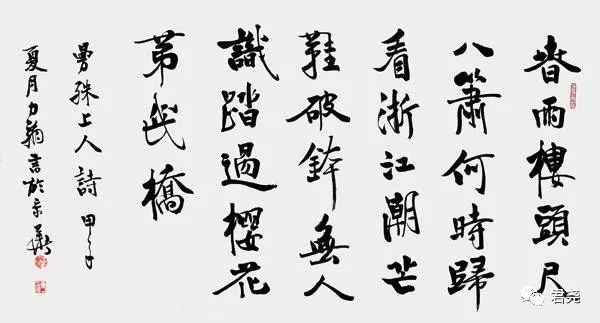 春雨樓頭尺
八簫何時歸
看浙江潮芒
鞋破鉢無人
識踏過櫻花
第幾橋
曼殊上人詩 甲
夏月力翰書於京華
君尧